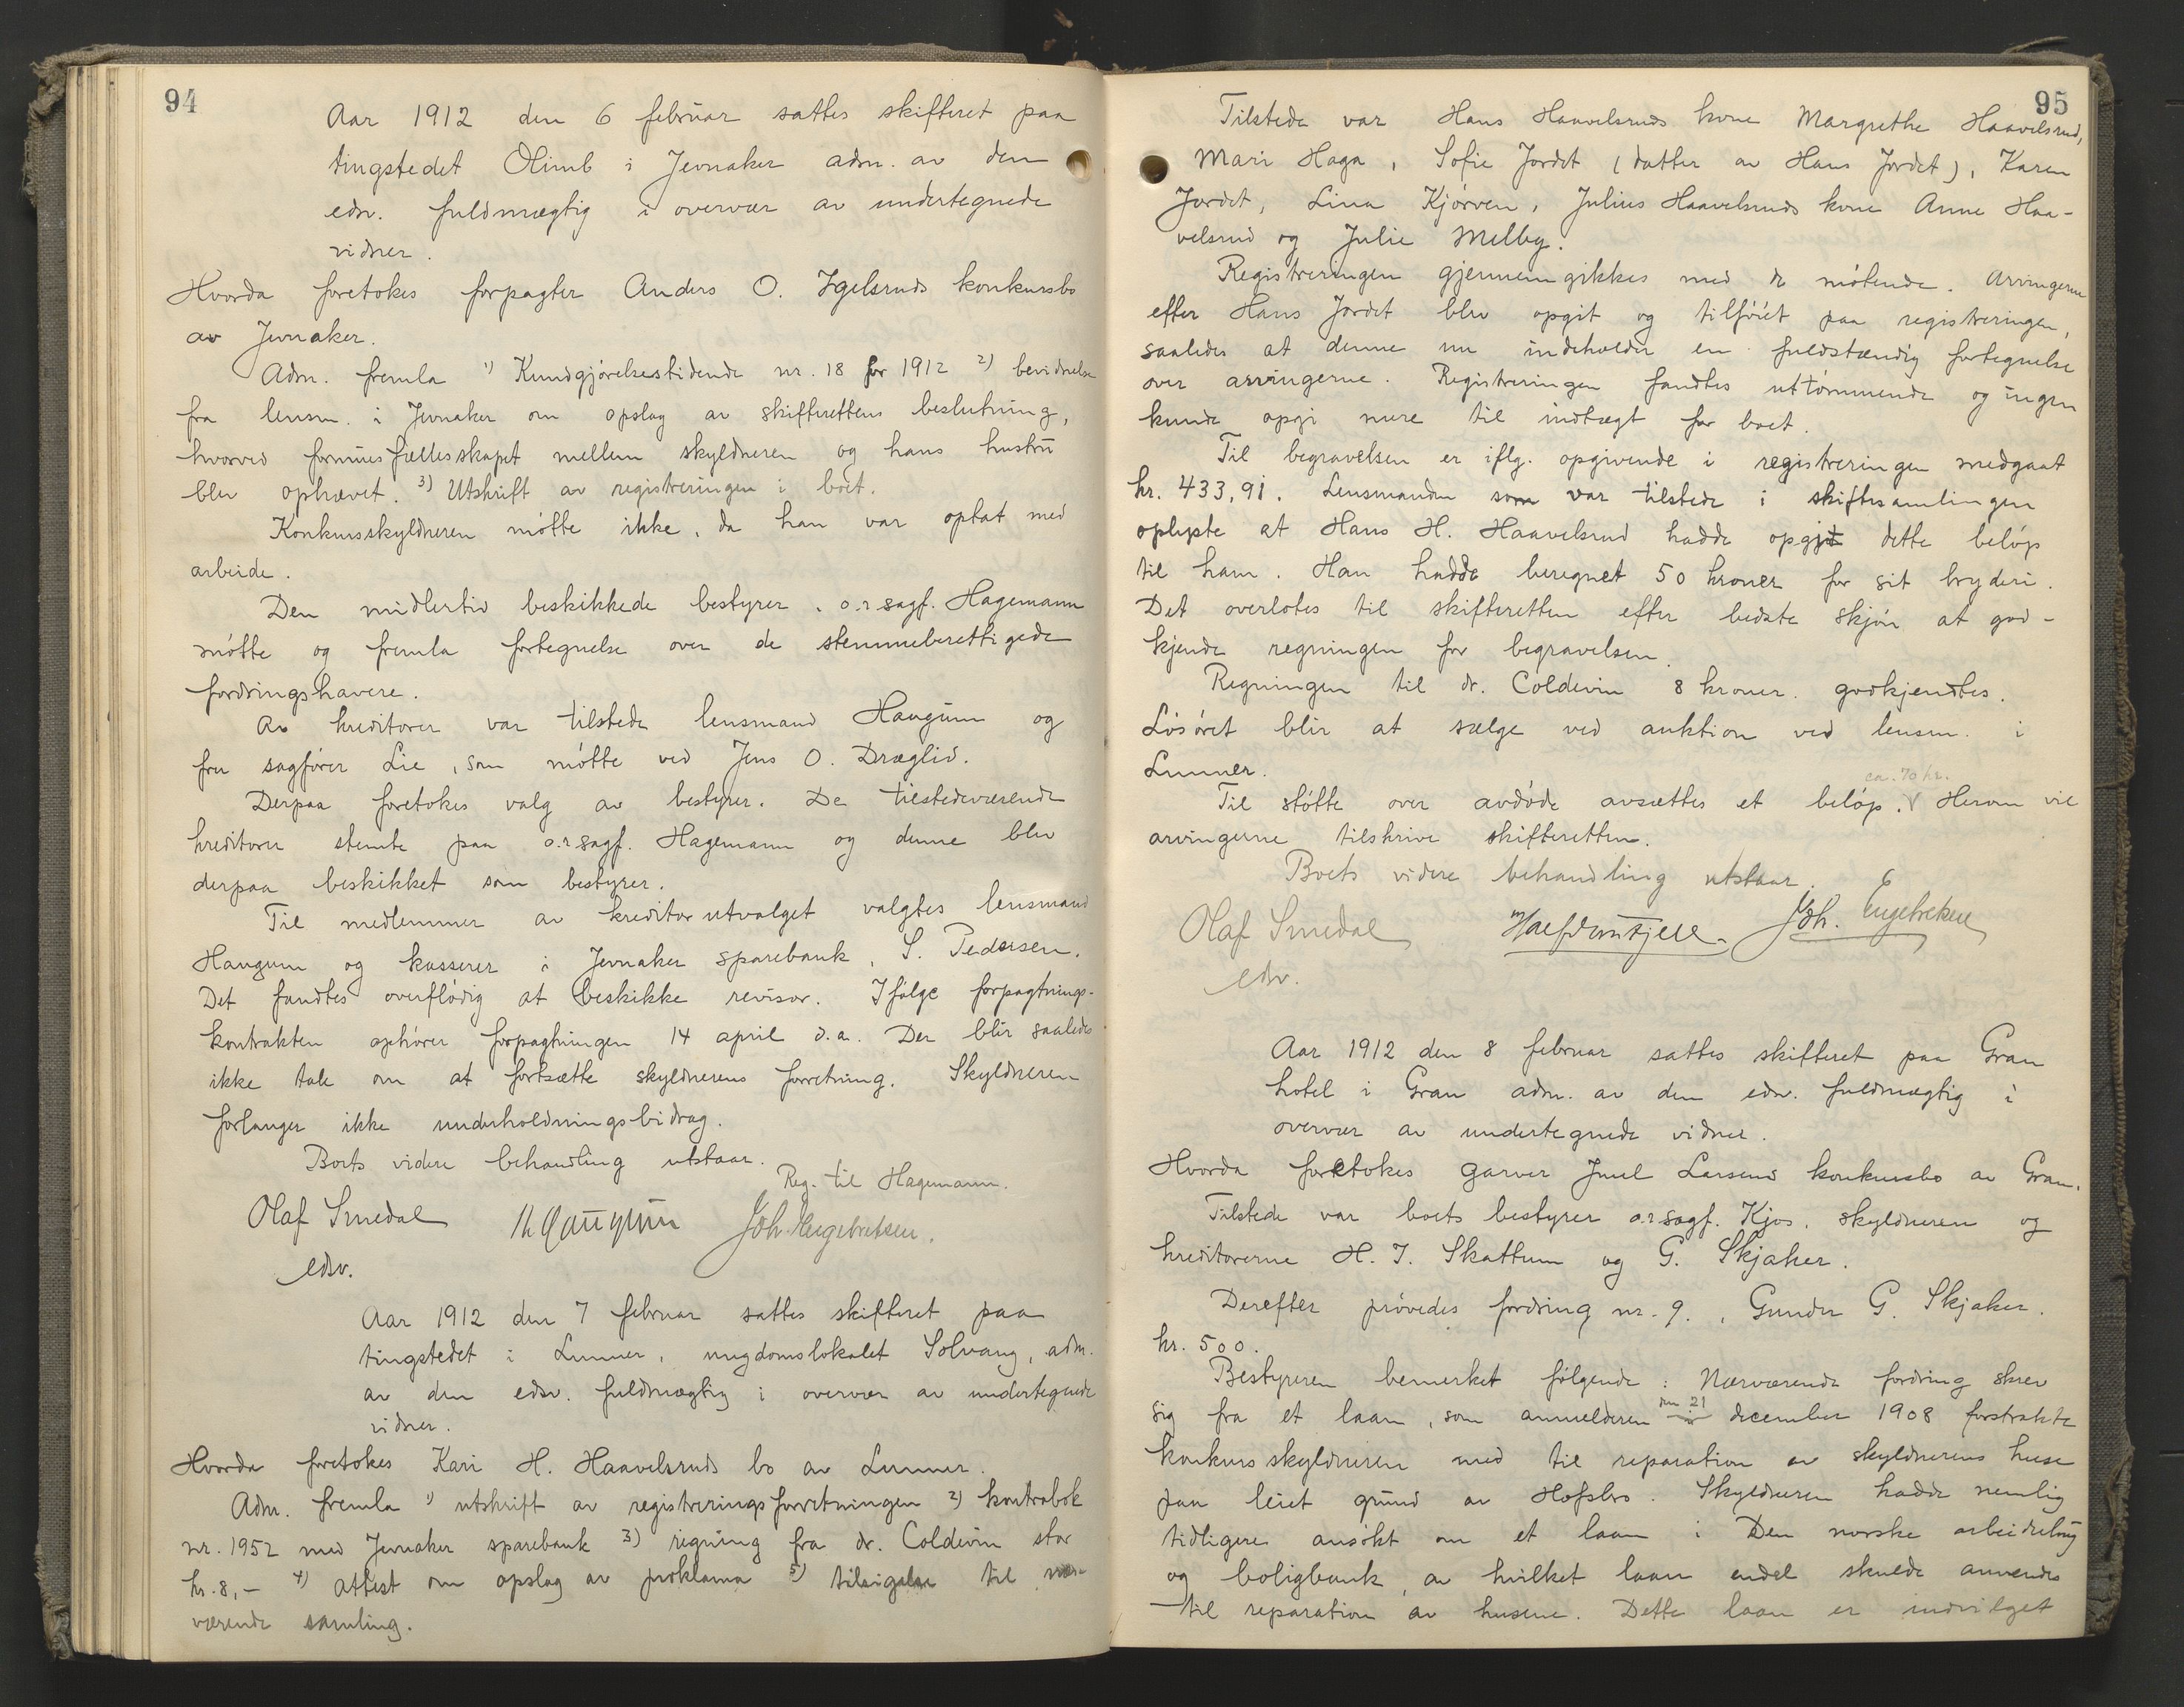 94
Aar 1912 den 6 februar sattes skifteret paa
tingstedet Olimb i Jevnaker adm. av den
edsv. fuldmægtig i overvær av undertegnede
vidner.
Hvorda foretokes forpagter Anders O. Igelsruds konkursbo
av Jevnaker.
Adm. fremla 1) Kundgjørelsestidende nr. 18 for 1912 2) bevidnelse
fra lensm. i Jevnaker om opslag av skifterettens beslutning,
hvorved formuesfællesskapet mellem skyldneren og hans hustru
blev ophævet. 3) Utskrift av registreringen i boet.
Konkursskyldneren møtte ikke, da han var optat med
arbeide.
Den midlertid beskikkede bestyrer, o.r.sagf. Hagemann
møtte og fremla fortegnelse over de stemmeberettigede
fordringshavere.
Av kreditorer var tilstede lensmand Haugum og
fru sagfører Lie, som møtte ved Jens O. Dræglid.
Derpaa foretokes valg av bestyrer. De tilstedeværende
kreditorer stemte paa o.r.sagf. Hagemann og denne blev
derpaa beskikket som bestyrer.
Til medlemmer av kreditorutvalget valgtes lensmand
Haugum og kasserer i Jevnaker sparebank, S. Pedersen.
Det fandtes overflødig at beskikke revisor. Ifølge forpagtnings-
kontrakten ophører forpagtningen 14 april d.a. Der blir saaledes
ikke tale om at fortsætte skyldnerens forretning. Skyldneren
forlanger ikke underholdningsbidrag.
Boets videre behandling utstaar.
Reg. til Hagemann.
Olaf Smedal Haugum Joh. Engebretsen.
edsv.
Aar 1912 den 7 februar sattes skifteret paa
tingstedet i Lunner, ungdomslokalet Solvang, adm.
av den edsv. fuldmægtig i overvær av undertegnede
vidner.
Hvorda foretokes Kari H. Haavelsruds bo av Lunner.
Adm. fremla 1) utskrift av registreringsforretningen 2) kontrabok
nr. 1952 med Jevnaker sparebank 3) regning fra dr. Coldevin stor
kr. 8,- 4) attest om opslag av proklama 5) tilsigelse til nær-
værende samling.
95
Tilstede var Hans Haavelsruds kone Margrethe Haavelsrud,
Mari Haga, Sofie Jordet (datter av Hans Jordet), Karen
Jordet, Lina Kjørven, Julius Haavelsruds kone Anne Haa-
velsrud og Julie Melby.
Registreringen gjennemgikkes med de møtende. Arvingerne
efter Hans Jordet blev opgit og tilføiet paa registreringen,
saaledes at denne nu indeholder en fuldstændig fortegnelse
over arvingerne. Registreringen fandtes uttømmende og ingen
kunde opgi mere til indtægt for boet.
Til begravelsen er iflg. opgivende i registreringen medgaat
kr. 433,91. Lensmanden som var tilstede i skiftesamlingen
oplyste at Hans H. Haavelsrud hadde opgit dette beløp
til ham. Han hadde beregnet 50 kroner for sit bryderi.
Det overlotes til skifteretten efter bedste skjøn at god-
kjende regningen for begravelsen.
Regningen til dr. Coldevin 8 kroner. godkjendtes.
Løsøret blir at sælge ved auktion ved lensm. i
Lunner.
ca. 70 kr.
Til støtte over avdøde avsættes et beløp. V Herom vil
arvingerne tilskrive skifteretten.
Boets videre behandling utstaar.
Olaf Smedal Joh. Engebretsen
edsv.
Aar 1912 den 8 februar sattes skifteret paa Gran
hotel i Gran adm. av den edsv. fuldmægtig i
overvær av undertegnede vidner.
Hvorda foretokes garver Juul Larsens konkursbo av Gran.
Tilstede var boets bestyrer o.r.sagf. Kjos, skyldneren og
kreditorerne H. I. Skattum og G. Skjaker.
Derefter prøvedes fordring nr. 9., Gunder G. Skjaker.
kr. 500.
Bestyreren bemerket følgende: Nærværende fordring skrev
sig fra et laan, som anmelderen den 21 december 1908 forstrakte
konkursskyldneren med til reparation av skyldnerens huse
paa leiet grund av Hofsbro. Skyldneren hadde nemlig
tidligere ansøkt om et laan i Den norske arbeiderbruk
og boligbank, av hvilket laan endel skulde anvendes
til reparation av husene. Dette laan er indvilget